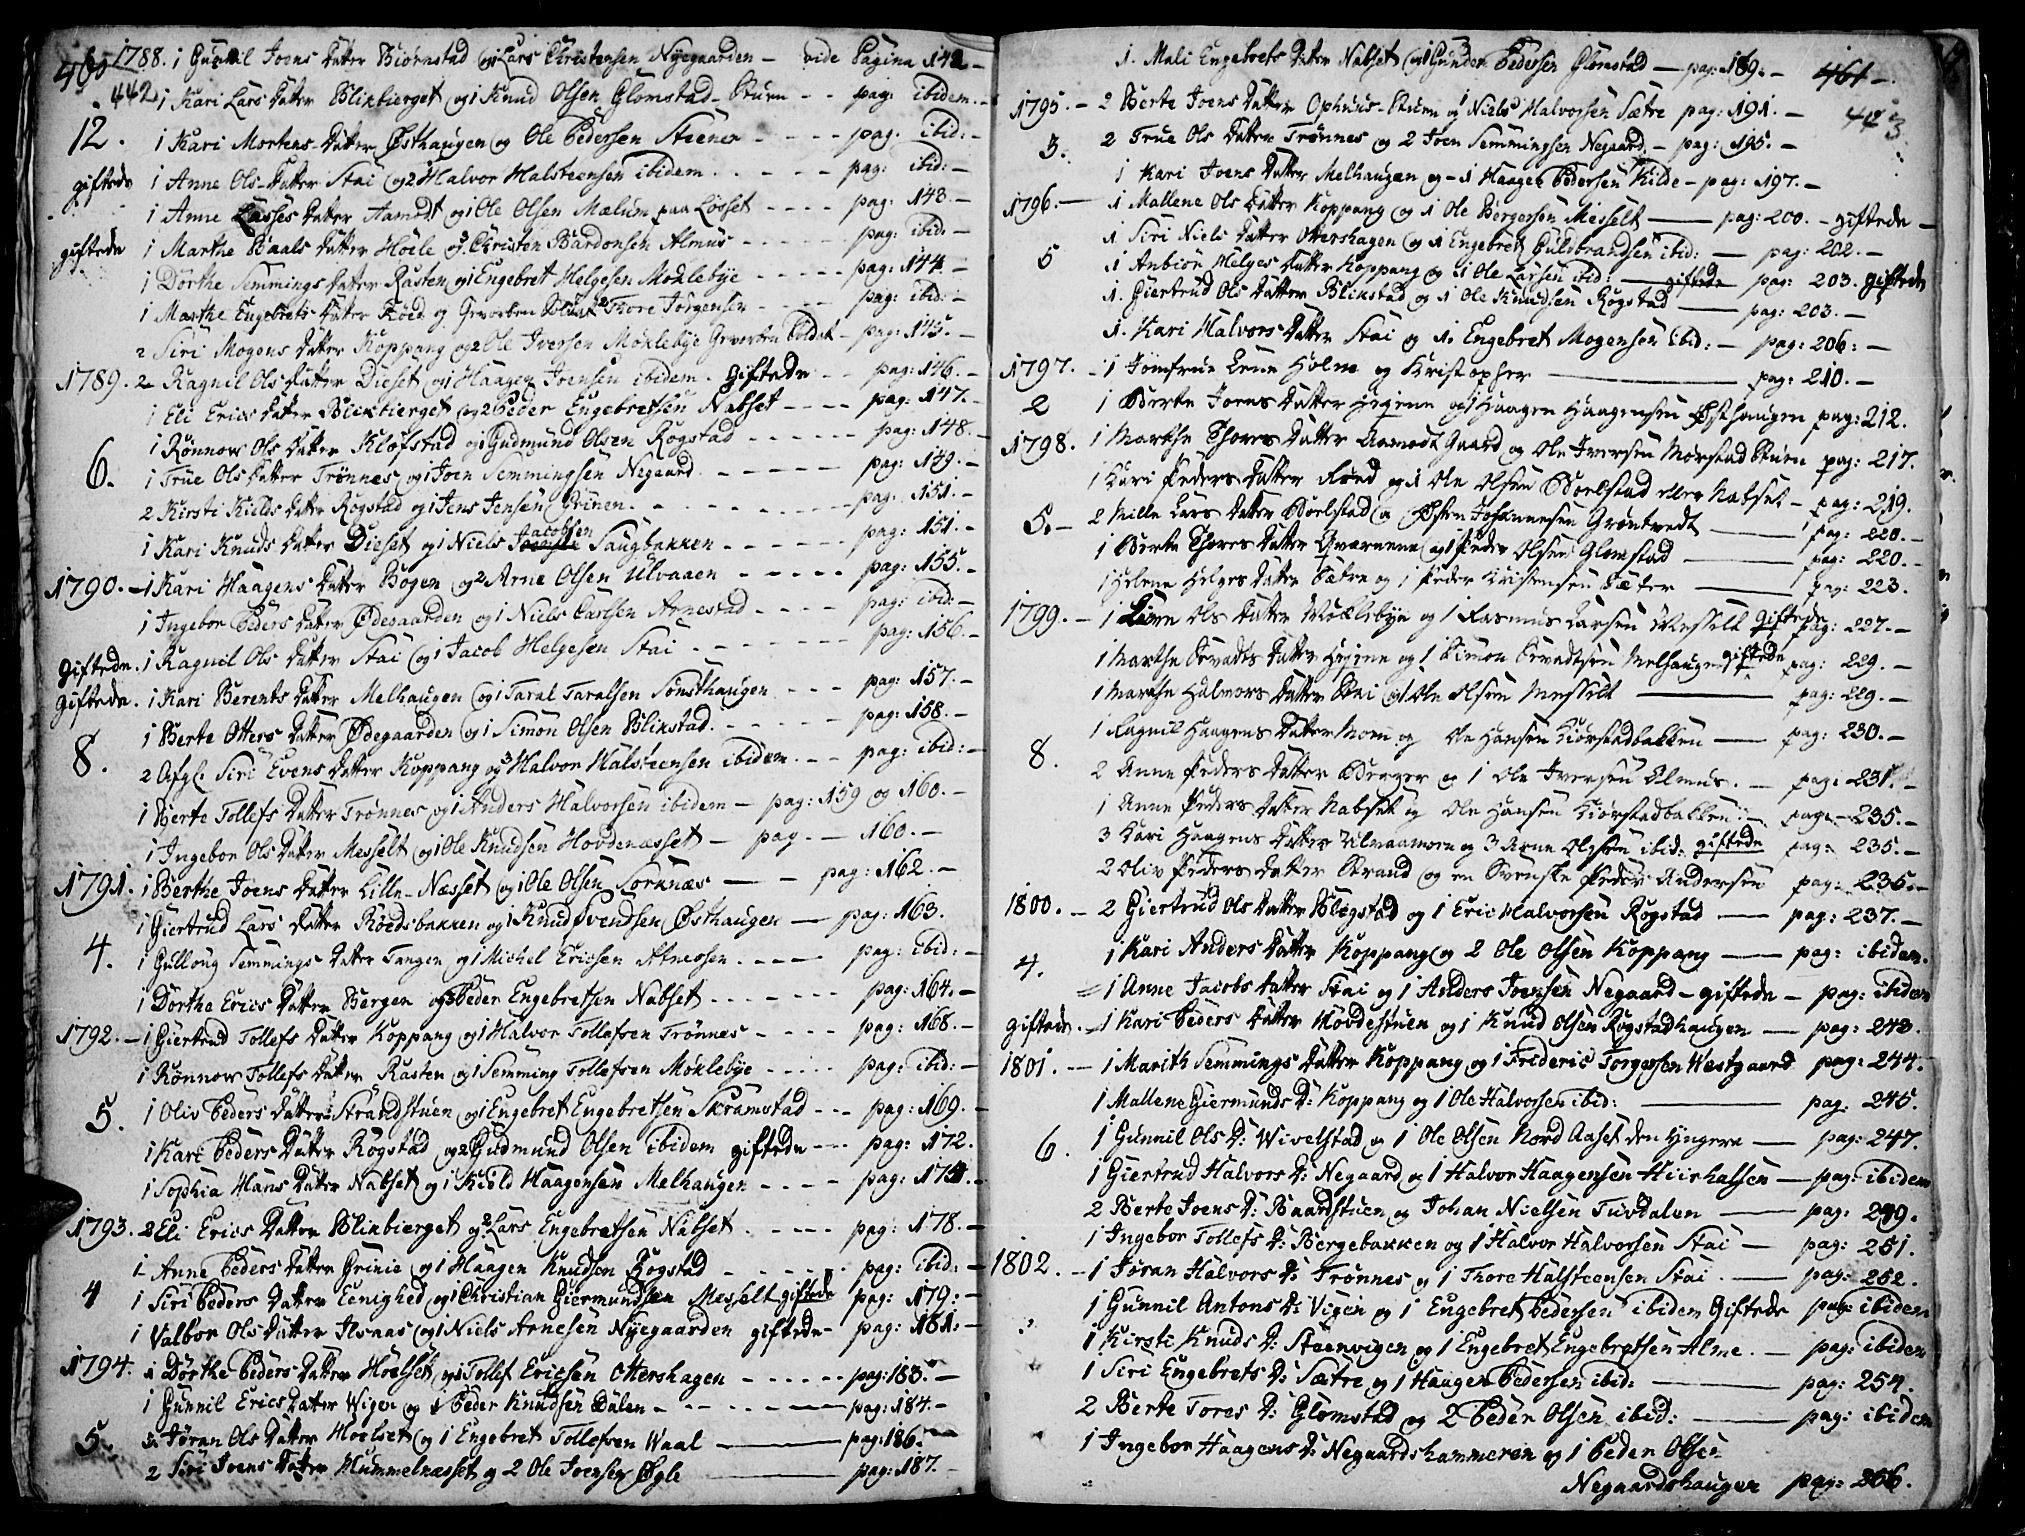 460
442
1788. 1 Gunnil Joens Datter Biørnstad og 1 Lars Christensen Nyegaarden - vide Pagina 142 -
1 Kari Lars Datter Blikbierget og 1 Knud Olsen Glomstad-Stuen - - pag: ibidem. -
12.
1 Kari Mortens-Datter Østhaugen og Ole Pedersen Steener - - - - pag: ibid: -
giftede 1 Anne Ols-Datter Stai og 2 Halvor Halsteensen ibidem - - - - pag: ibid: -
1 Anne Lasses Datter Aamodt og 1 Ole Olsen Mælum paa Løsset - - - - pag: 143 -
giftede 1 Marthe Paals Datter Hoele og Christen Bardonsen Almus - - - - pag: ibid: -
1 Dorthe Semmings Datter Rasten og 1 Engebret Helgesen Moklebye - - - - pag: 144 -
1 Marthe Engebrets Datter Koed og Gevorben Soldat Thore Jørgensen - - - pag: ibid: -
2 Siri Mogens Datter Koppang og 2 Ole Iversen Moklebye Gevorben Soldat - pag: 145. -
1789. 2 Ragnil Ols Datter Dieset og 1 Haagen Joensen ibidem. Giftede - - pag: 146. -
1 Eli Erics Datter Blikbierget og 2 Peder Engebretsen Nabset - - - - pag: 147. -
1 Rønnow Ols Datter Kløfstad og 1 Gudmund Olsen Rogstad - - - - - pag: 148. -
6.
1 True Ols Datter Trønnes og 1 Joen Semmingsen Negaard - - - - - pag: 149. -
2 Kirsti Kields Datter Rogstad og 1 Jens Jensen Grinen. - - - - - pag: 151. -
1 Kari Knuds Datter Dieset og 1 Niels Jacobsen Saugbakken - - - - - pag: 151. -
1790. - 1 Kari Haagens Datter Bogen og 2 Arne Olsen Ulvaaen - - - - - pag: 155. -
1 Ingebor Peders Datter Ødegaarden og 1 Niels Carlsen Arnestad - - - - pag: ibid: -
Giftede. 1 Ragnil Ols Datter Stai og 1 Jacob Helgesen Stai - - - - - pag: 156. -
Giftede. 1 Kari Berents Datter Melhaugen og 1 Taral Taralsen Sønsthaugen - - - pag: 157. -
1 Berte Otters Datter Ødegaarden og 1 Simon Olsen Blikstad. - - - - - pag: 158. -
8.
2 Afgl: Siri Evens Datter Koppang og 3 Halvor Halsteensen ibidem - - - pag: ibid: -
1 Berte Tollefs Datter Trønnes og 1 Anders Halvorsen ibidem - pag: 159 og 160. -
1 Ingebor Ols Datter Messelt og 1 Ole Knudsen Hovdenæsset - pag. - 160. -
1791. 1 Berthe Joens Datter Lille-Næsset og 1 Ole Olsen Sorknæs - - pag: 162. -
1 Giertrud Lars Datter Roedsbakken og 1 Knud Svendsen Østhaugen - pag: 163.
4.
1 Gullong Semmings Datter Tangen og 1 Michel Ericsen Atneosen - - - - pag: ibid: -
1 Dorthe Erics Datter Bergen og Peder Engebretsen Nabset - - - - - - pag: 164. -
1792. - 1 Giertrud Tollefs Datter Koppang og 1 Halvor Tollefsen Trønnes - - - - - pag: 168. -
1 Rønnow Tollefs Datter Rasten og 1 Semming Tollefsen Moklebye - - - - - pag: ibid: -
5.
1 Oliv Peders Datter Strandstuen og 1 Engebret Engebretsen Skramstad - - - pag: 169. -
1 Kari Peders Datter Rogstad og 2 Gudmund Olsen ibidem giftede - - - pag: 172.
1 Sophia Hans Datter Nabset og 1 Kield Haagensen Melhaugen - - - - pag: 174. -
1793. 2 Eli Erics Datter Blikbierget og 2 Lars Engebretsen Nabset - - - - pag: 178. -
1 Anne Peders Datter Grinie og 1 Haagen Knudsen Rogstad - - - - - - pag: ibid: -
4
1 Siri Peders Datter Eenighed og 1 Christian Giermundsen Messelt giftede pag: 179: -
1 Valbor Ols Datter Ilsaas og 1 Niels Arnesen Nyegaarden giftede - pag: 181. -
1794. 1 Dorthe Peders Datter Hoelset og 1 Tollef Ericsen Ottershagen - - - - - - pag: 183. -
1 Gunnil Erics Datter Wigen og 1 Peder Knudsen Dalen - - - - - - pag: 184. -
5.
1 Jøran Ols Datter Hoelset og 1 Engebret Tollefsen Waal - pag: 186. -
2 Siri Joens Datter Hummelnæsset og 2 Ole Joensen Øgle - pag: 187. -
1. Mali Engebrets Datter Nabset og Gunder Pedersen Glomstad - pag: 189. - 461 -
443
1795. - 2 Berte Joens Datter Ophuus-Stuen og 1 Niels Halvorsen Sætre pag: 191. -
3.
2 True Ols Datter Trønnes og 2 Joen Semmingsen Negaard - pag: 195. -
1 Kari Joens Datter Melhaugen og - 1 Haagen Pedersen Kilde - pag: 197. -
1796. - 1 Mallene Ols Datter Koppang og 1 Ole Borgersen Messelt - pag: 200. - giftede -
1 Siri Niels Datter Ottershagen og 1 Engebret Guldbrandsen ibid: - pag: 202. -
5
1 Anbiør Helges Datter Koppang og 1 Ole Larsen ibid: - giftede pag: 203. giftede
1. Giertrud Ols Datter Blikstad og 1 Ole Knudsen Rogstad - pag: 203. -
1. Kari Halvors Datter Stai og 1. Engebret Mogensen ibid: - pag: 206: -
1797. - 1 Jomfrue Lene Holm og Kristopher - pag: 210. -
2
1 Berte Joens Datter Hegene og 1 Haagen Haagensen Østhaugen pag: 212.
1798. 1 Marthe Thores Datter Aamodt Gaard og Ole Iversen Morstad Stuen pag: 217.
1 Kari Peders Datter Koed og 1 Ole Olsen Bolstad eller Nabset - pag: 219.
5. -
2 Mille Lars Datter Bolstad og Østen Johannesen Grøntvedt - pag: 220. -
1 Berte Thores Datter Qværnene og 1 Peder Olsen Glomstad - pag: 220. -
1 Helene Helges Datter Sætre og 1 Peder Kristensen Sæter - pag: 223.
1799. - 1 Karen Ols Datter Moklebye og 1 Rasmus Larsen Messelt giftede pag: 227. -
1 Marthe Sevadts Datter Hegene og 1 Simon Sevadtsen Melhaugen giftede pag: 229. -
1 Marthe Halvors Datter Stai og 1 Ole Olsen Messelt - pag: 229. -
1 Ragnil Haagens Datter Moen og Ole Hansen Kiorstadbakken - pag: 230. -
8.
2 Anne Peders Datter Berger og 1 Ole Iversen Almus. - pag: 231. -
1 Anne Peders Datter Nabset og Ole Hansen Kiorstadbakken: - pag: 235. -
3 Kari Haagens Datter Ulvaamoen og 3 Arne Olssen ibid: giftede pag: 235. -
2 Oliv Peders Datter Strand og en Svenske Peder Andersen pag: 235. -
1800. - 2 Giertrud Ols Datter Blegstad og 1 Eric Halvorsen Rogstad - pag: 237. -
4.
1 Kari Anders Datter Koppang og 2 Ole Olsen Koppang - pag: ibidem.
1 Anne Jacobs Datter Stai og 1 Anders Joensen Negaard - giftede - pag: ibidem
Giftede. - 1 Kari Peders Datter Hovdestuen og 1 Knud Olsen Rogstadhaugen - pag: 243. -
1801. - 1 Marith Semmings Datter Koppang og 1 Frideric Torgersen Westgaard pag: 244.
1 Mallene Giermunds D: Koppang og 1 Ole Halvorsen ibid: - pag: 245.
6.
1 Gunnil Ols D: Wivelstad og 1 Ole Olsen Nord Aaset den Yngere - pag: 247.
1 Giertrud Halvors D: Negaard og 1 Halvor Haagensen Hiirhalsen - pag: ibidem
2 Berte Joens D: Baardstuen og Johan Nielsen Turdalen - pag: 249.
1 Ingebor Tollefs D: Bergebakken og 1 Halvor Halvorsen Stai - pag: 251.
1802. - 1 Jøran Halvors D: Trønnes og 1 Thore Halsteensen Stai. - pag: 252.
1 Gunnil Antons D: Vigen og 1 Engebret Pedersen ibidem Giftede pag: ibidem
1 Kirsti Knuds D: Steenvigen og 1 Engebret Engebretsen Alme. - pag: ibidem
1 Siri Engebrets D: Sætre og 1 Haagen Pedersen ibid: - pag: 254.
2 Berte Tores D: Glomstad og 2 Peder Olsen ibid: - pag: ibidem
1 Ingebor Haagens D: Negaardshammeren og 1 Peder Olsen
Negaardshaugen pag: 256.